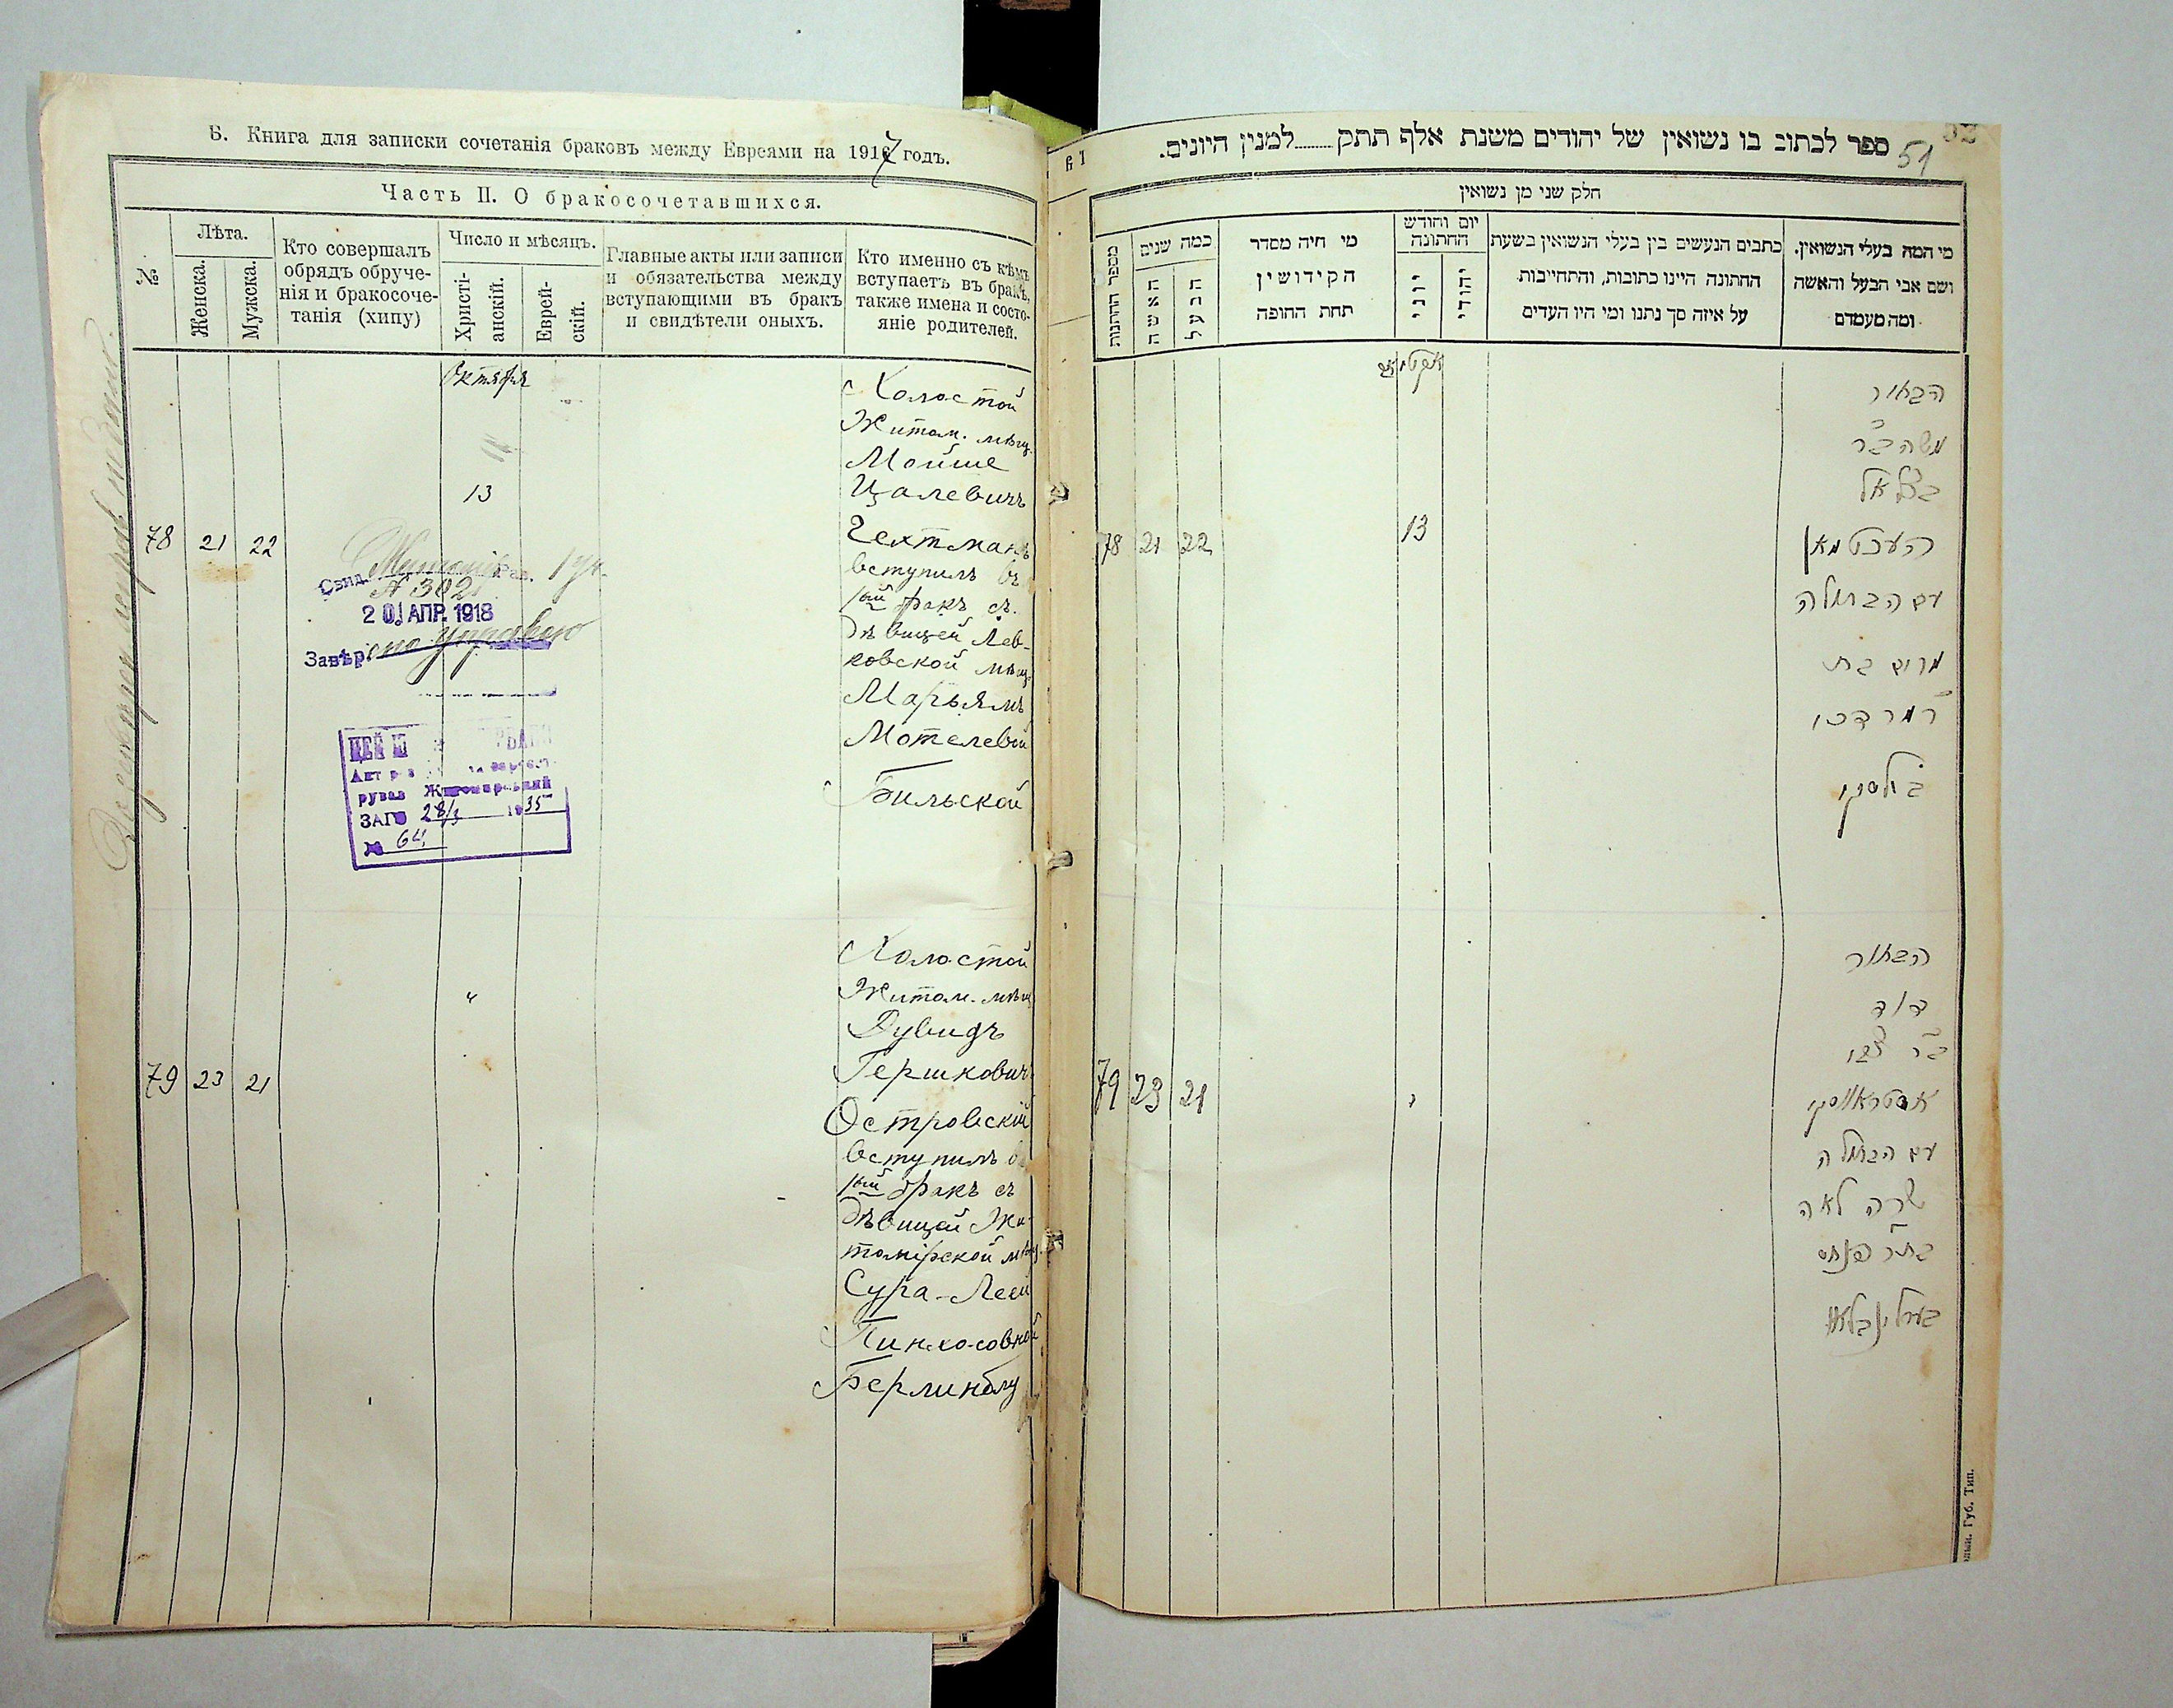 Б. Книга для записки сочетанія браковъ между Евреями на 1917 годъ.
Часть II. О бракосочетавшихся.
№
Лѣта.
Женска.
Мужска.
Кто совершалъ
обрядъ обруче-
нія и бракосоче-
танія (хипу)
Число и мѣсяцъ.
Христі-
анскій.
Еврей-
скій.
Главные акты или записи
и обязательства между
вступающими въ бракъ
и свидѣтели оныхъ.
Кто именно съ кѣмъ
вступаетъ въ бракъ,
также имена и состо-
яніе родителей.
Октября
13
78 21 22
Холостой
Житом. мѣщ.
Мойше
Цалевичъ
Гехтманъ
вступилъ въ
1ый бракъ съ
дѣвицей Лев-
ковской мѣщ.
Марьямъ
Мотелевой
Бильской
Свид.
№ 302
20 АПР. 1918
Завѣр
ЗАГС 28/3 1935
№ 64
79 23 21
"
Холостой
Житом. мѣщ.
Дувидъ
Гершковичъ
Островскій
вступилъ въ
1ый бракъ съ
дѣвицей Жи-
томірской мѣщ.
Сура-Леей
Пинхосовной
Берлинблу
ספר לכתוב בו נשואין של יהודים משנת אלף תתק למנין היונים.
51
חלק שני מן נשואין
מספר החתונות
כמה שנים
האשה
הבעל
מי היה מסדר
הקידושין
תחת החופה
יום וחודש
החתונה
יוני
יהודי
כתבים הנעשים בין בעלי הנשואין בשעת
החתונה היינו כתובות, והתחייבות
על איזה סך נתנו ומי היו העדים
מי המה בעלי הנשואין.
ושם אבי הבעל והאשה
ומה מעמדם
78 21 22
13
הבחור
משה ב"ר
בצלאל
העכטמאן
עם הבתולה
מרים בת
ר' מרדכי
בילסקי
79 23 21
הבחור
דוד
ב"ר צבי
אסטראווסקי
עם הבתולה
שרה לאה
בת ר' פנחס
בערלינבלאו
Губ. Тип.